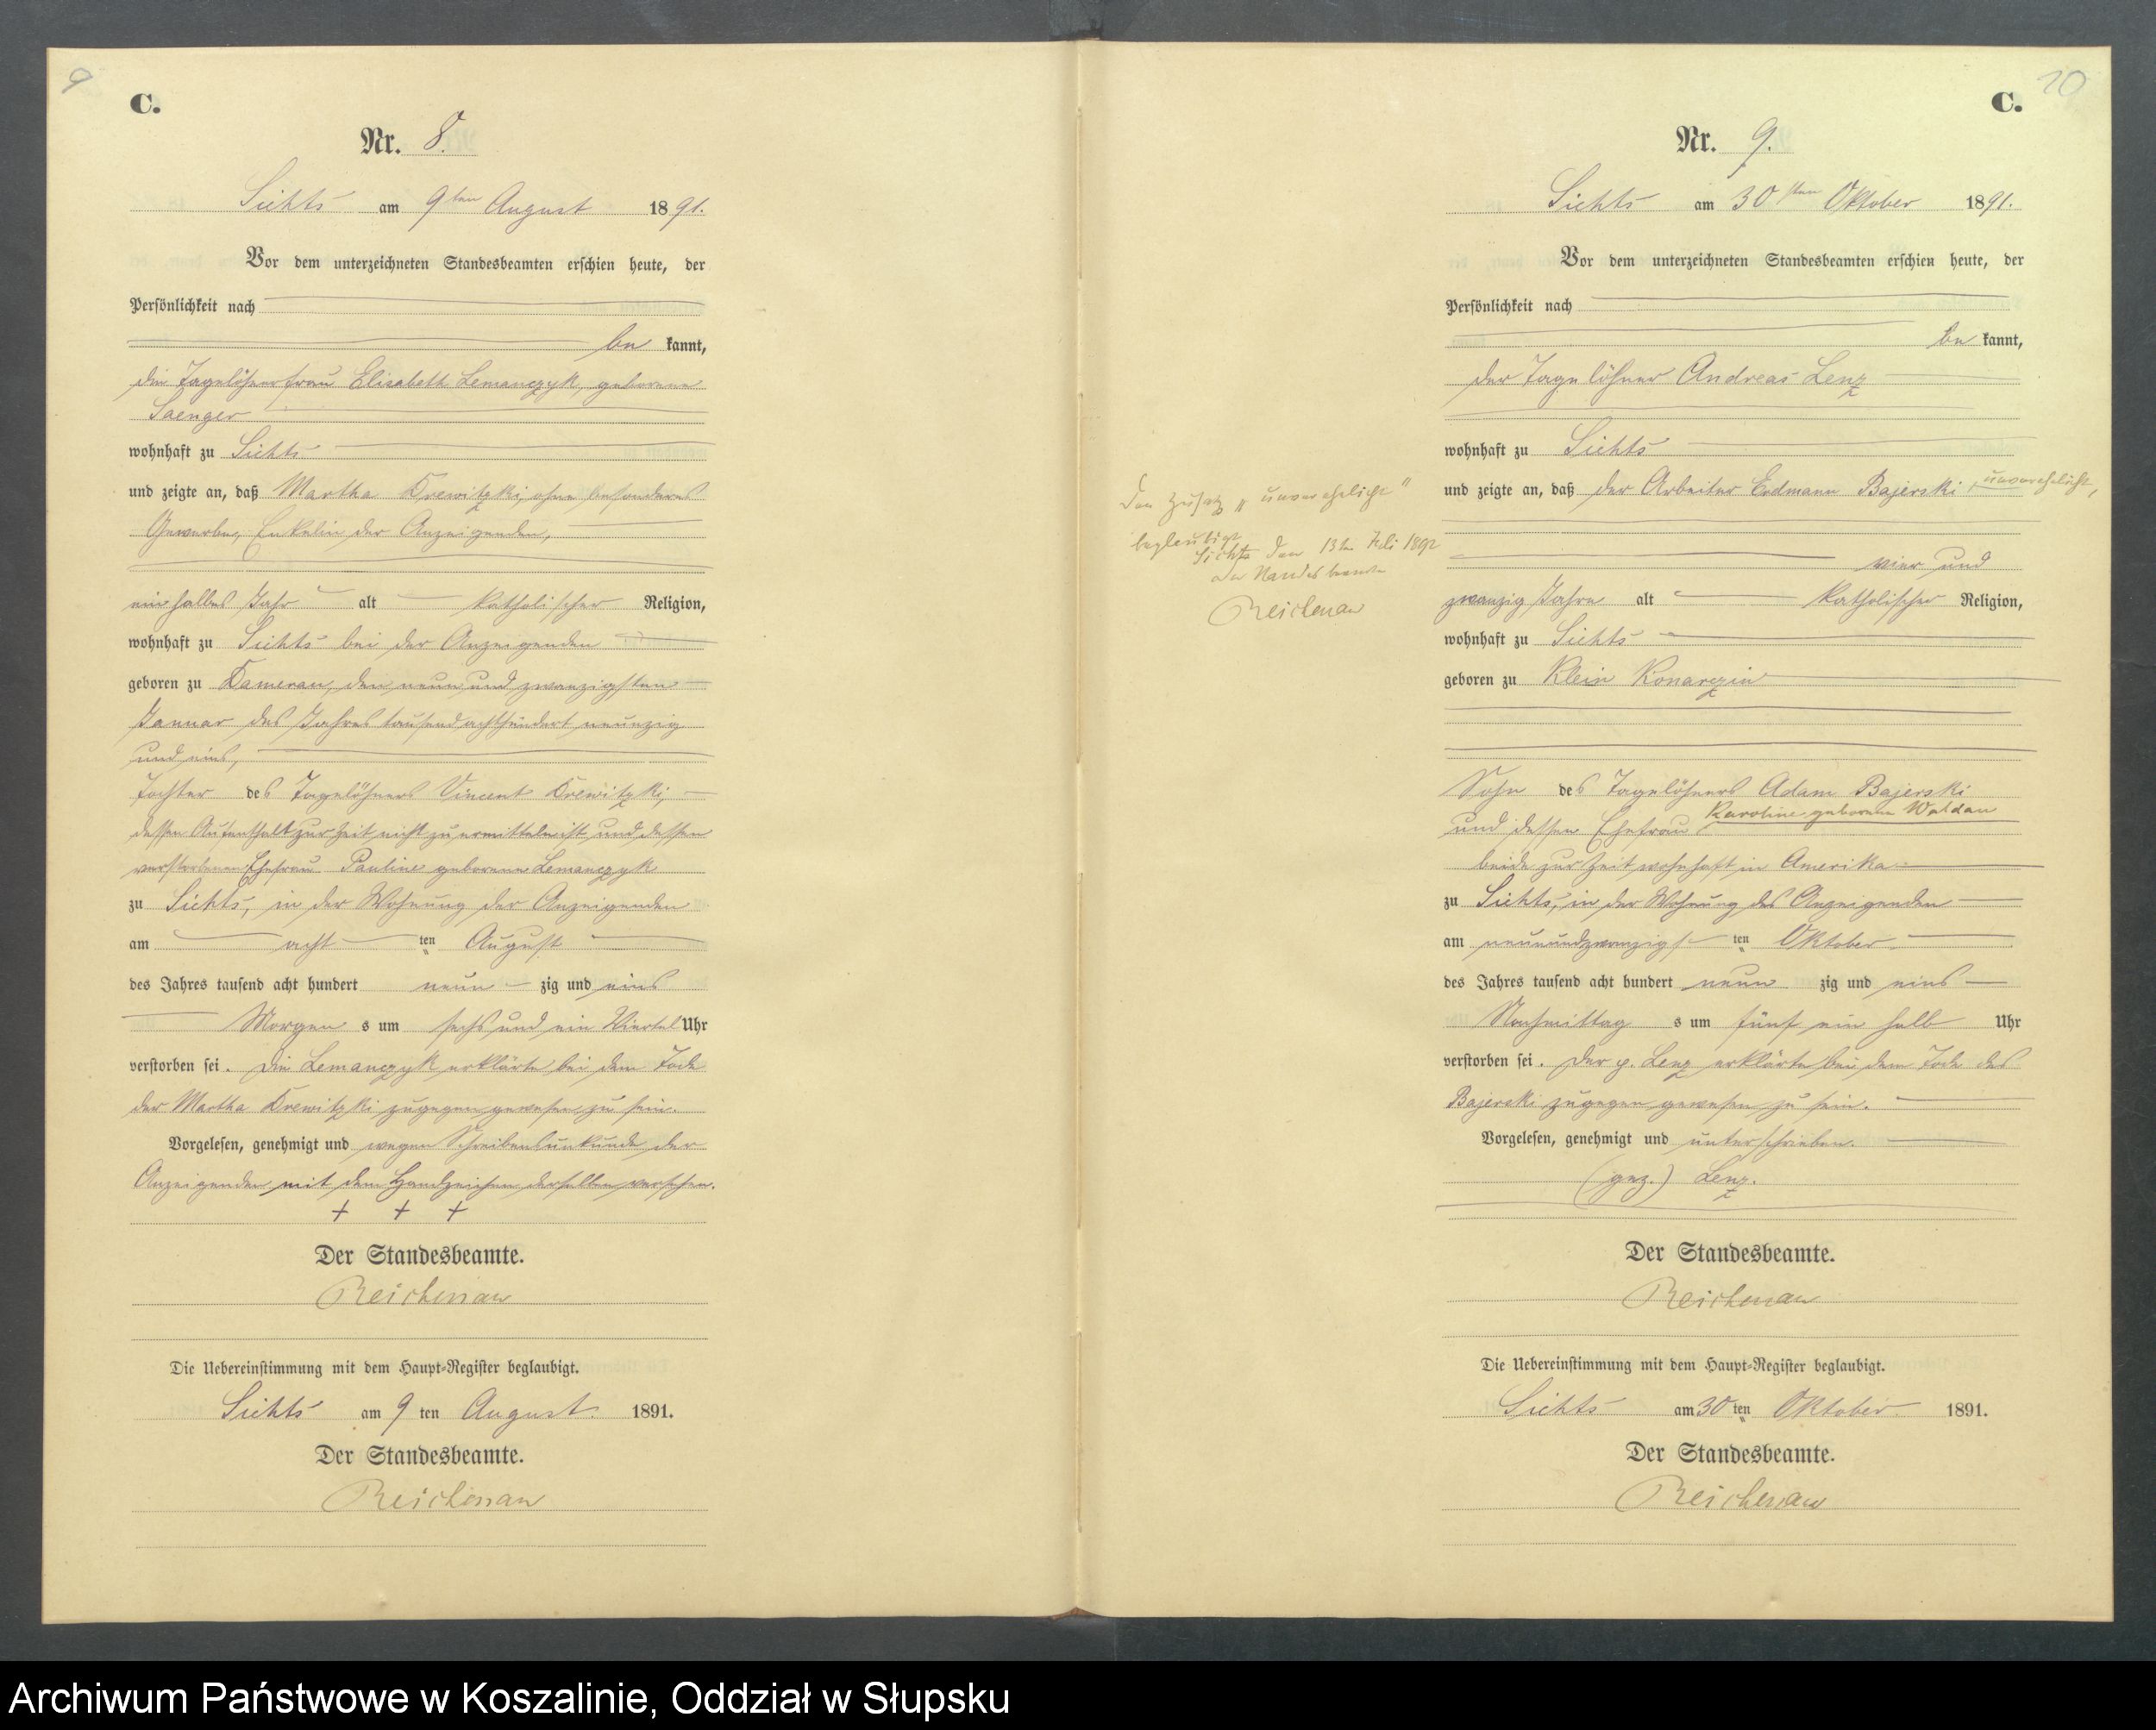 9
C.
Nr. 8.
Sichts am 9ten August 1891.
Vor dem unterzeichneten Standesbeamten erschien heute, der
Persönlichkeit nach
be kannt,
die Tagelöhnerfrau Elisabeth Lemanczyk, geborene
Saenger
wohnhaft zu Sichts
und zeigte an, daß Martha Drewitzki, ohne besonderes
Gewerbe, Enkelin der Anzeigenden,
ein halbes Jahr alt katholischer Religion,
wohnhaft zu Sichts bei der Anzeigenden
geboren zu Damerau, den neun und zwanzigsten
Januar des Jahres tausend achthundert neunzig
und eins,
Tochter des Tagelöhners Vincent Drewitzki,
dessen Aufenthalt zur Zeit nicht zu ermitteln ist, und dessen
verstorbenen Ehefrau Pauline geborene Lemanczyk
zu Sichts, in der Wohnung der Anzeigenden
am acht ten August
des Jahres tausend acht hundert neun zig und eins
Morgen s um sechs und ein Viertel Uhr
verstorben sei. Die Lemanczyk erklärte bei dem Tode
der Martha Drewitzki zugegen gewesen zu sein.
Vorgelesen, genehmigt und wegen Schreibensunkunde der
Anzeigenden mit dem Handzeichen derselben versehen.
+ + +
Der Standesbeamte.
Reichenau
Die Uebereinstimmung mit dem Haupt-Register beglaubigt.
Sichts am 9 ten August 1891.
Der Standesbeamte.
Reichenau
10
C.
Nr. 9.
Sichts am 30sten Oktober 1891.
Vor dem unterzeichneten Standesbeamten erschien heute, der
Persönlichkeit nach
be kannt,
der Tagelöhner Andreas Lenz
wohnhaft zu Sichts
und zeigte an, daß der Arbeiter Erdmann Bajerski, unverehelicht,
vier und
zwanzig Jahre alt katholischer Religion,
wohnhaft zu Sichts
geboren zu Klein Konarczin
Sohn des Tagelöhners Adam Bajerski
und dessen Ehefrau Karoline geborene Waldau
beide zur Zeit wohnhaft in Amerika
zu Sichts, in der Wohnung des Anzeigenden
am neunundzwanzigs ten Oktober
des Jahres tausend acht hundert neun zig und eins
Nachmittag s um fünf ein halb Uhr
verstorben sei. Der p. Lenz erklärte bei dem Tode des
Bajerski zugegen gewesen zu sein.
Vorgelesen, genehmigt und unterschrieben.
(gez.) Lenz.
Der Standesbeamte.
Reichenau
Die Uebereinstimmung mit dem Haupt-Register beglaubigt.
Sichts am 30 ten Oktober 1891.
Der Standesbeamte.
Reichenau
Den Zusatz „unverehelicht"
beglaubigt
Sichts den 13ten Juli 1892
Der Standesbeamte
Reichenau
Archiwum Państwowe w Koszalinie, Oddział w Słupsku